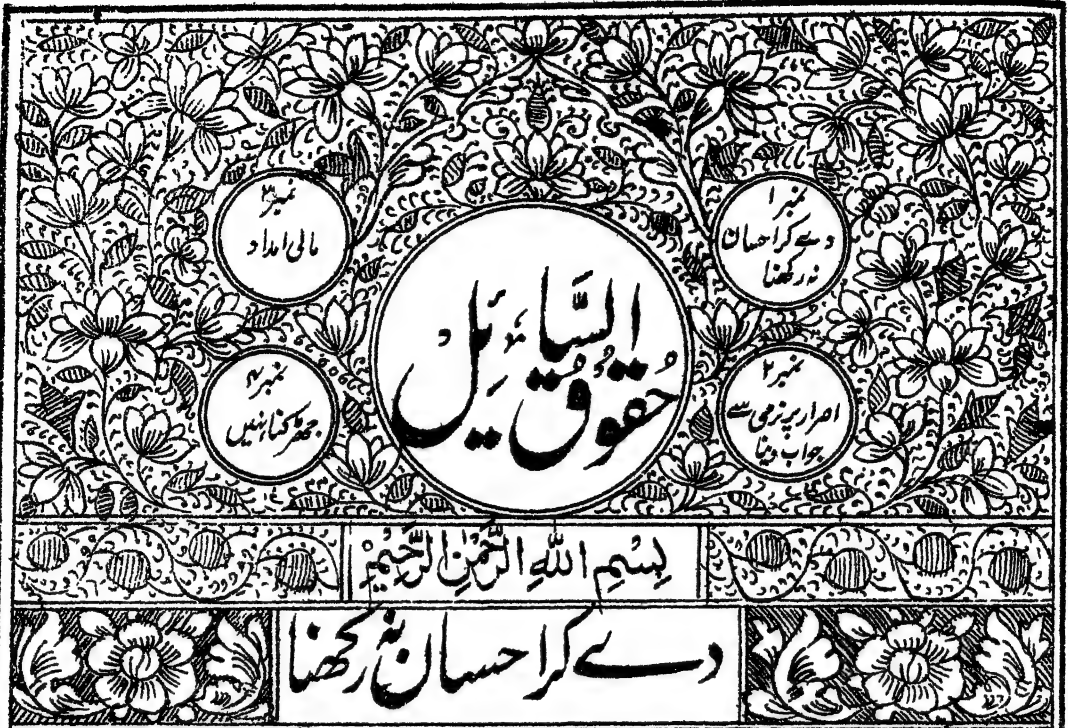 نمبر ۱
دے کر احسان
نہ رکھنا
نمبر ۲
اصرار پر نرمی سے
جواب دینا
نمبر ۳
مالی امداد
نمبر ۴
جھڑکنا نہیں
حُقُوقُ السَّائِل
بِسْمِ اللّٰهِ الرَّحْمٰنِ الرَّحِيْمِ
دے کر احسان نہ رکھنا